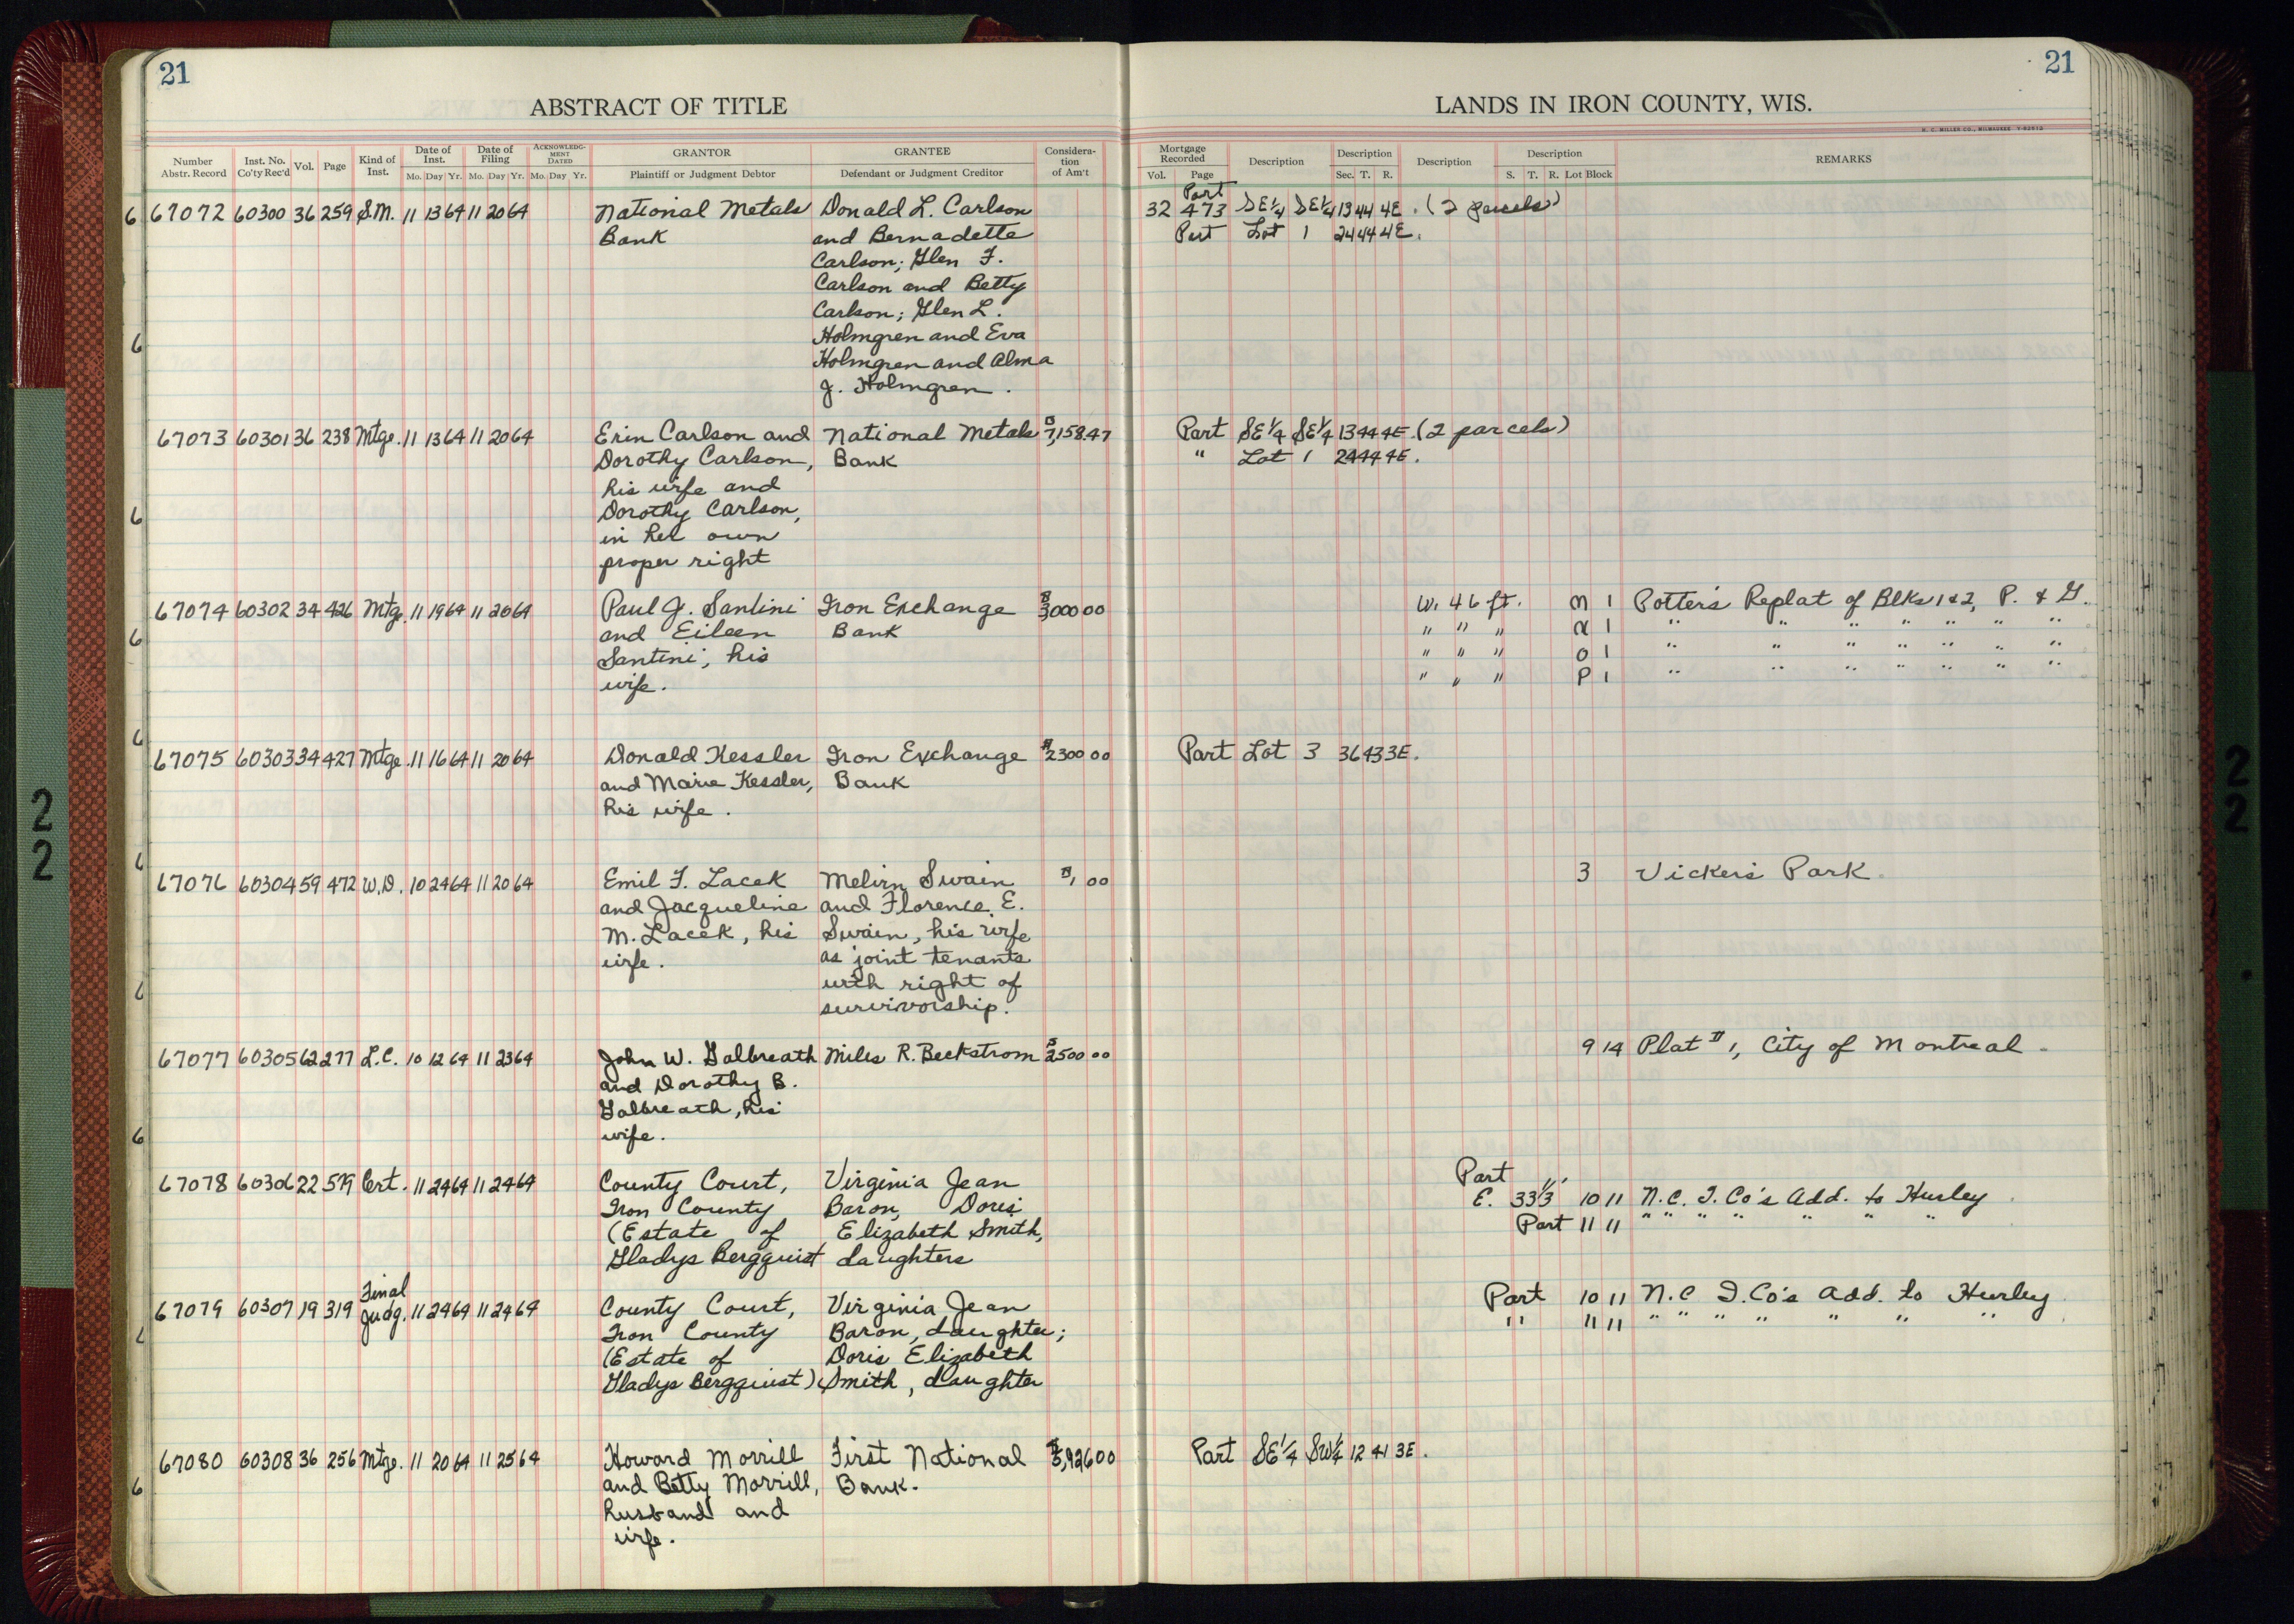 21
21
ABSTRACT OF TITLE
LANDS IN IRON COUNTY, WIS.
H. C. MILLER CO., MILWAUKEE
Number Abstr. Record
Inst. No. Co'ty Rec'd
Vol.
Page
Kind of Inst.
Date of Inst.
Mo. Day Yr.
Date of Filing
Mo. Day Yr.
ACKNOWLEDGMENT DATED
Mo. Day Yr.
GRANTOR
Plaintiff or Judgment Debtor
GRANTEE
Defendant or Judgment Creditor
Consideration of Am't
Mortgage Recorded
Vol. Page
Description
Description
Sec. T. R.
Description
Description
S. T. R. Lot Block
REMARKS
Part
6 67072 60300 36 259 S.M. 11 13 64 11 20 64 National Metals Donald L. Carlson 32 473 SE¼ SE¼ 13 44 4E. (2 parcels)
Bank and Bernadette Part Lot 1 24 44 4E.
Carlson; Glen F.
Carlson and Betty
Carlson; Glen L.
6 Holmgren and Eva
Holmgren and Alma
J. Holmgren.
67073 60301 36 238 Mtge. 11 13 64 11 20 64 Erin Carlson and National Metals $7,158.47 Part SE¼ SE¼ 13 44 4E. (2 parcels)
Dorothy Carlson, Bank " Lot 1 24 44 4E.
his wife and
6 Dorothy Carlson,
in her own
proper right
67074 60302 34 426 Mtge. 11 19 64 11 20 64 Paul J. Santini Iron Exchange $3,000 00 W. 46 ft. M 1 Potter's Replat of Blks 1 & 2, P. & G.
6 and Eileen Bank " " " 1 " " " " " " "
Santini, his " " " O 1 " " " " " " "
wife. " " " P 1 " " " " " " "
6
67075 60303 34 427 Mtge. 11 16 64 11 20 64 Donald Kessler Iron Exchange $2300 00 Part Lot 3 36 43 3E.
and Marie Kessler, Bank
his wife.
6
67076 60304 59 472 W.D. 10 24 64 11 20 64 Emil F. Lacek Melvin Swain $1 00 3 Vickers Park
and Jacqueline and Florence E.
M. Lacek, his Swain, his wife
wife. as joint tenants
6 with right of
survivorship.
67077 60305 62 277 L.C. 10 12 64 11 23 64 John W. Galbreath Miles R. Beckstrom $2500 00 9 14 Plat #1, City of Montreal
and Dorothy B.
Galbreath, his
6 wife.
Part
67078 60306 22 579 Cert. 11 24 64 11 24 64 County Court, Virginia Jean E. 33⅓' 10 11 N.C. I. Co's Add. to Hurley
Iron County Baron, Doris Part 11 11 " " " " " " "
(Estate of Elizabeth Smith,
Gladys Bergquist daughters
Final
67079 60307 19 319 Judg. 11 24 64 11 24 64 County Court, Virginia Jean Part 10 11 N.C. I. Co's Add. to Hurley
6 Iron County Baron, daughter; " 11 11 " " " " " " "
(Estate of Doris Elizabeth
Gladys Bergquist) Smith, daughter
67080 60308 36 256 Mtge. 11 20 64 11 25 64 Howard Morrill First National $5,926 00 Part SE¼ SW¼ 12 41 3E.
6 and Betty Morrill, Bank.
husband and
wife.
22
22